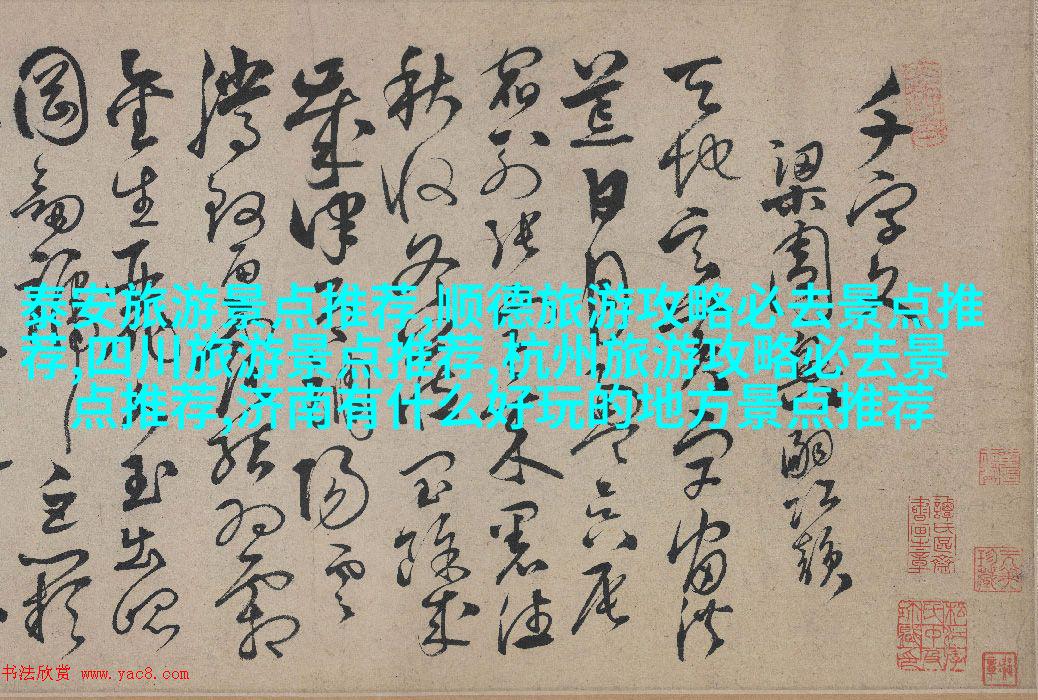 千字文
梁周興嗣次韻
天地玄黃宇宙洪
荒日月盈昃辰
宿列張寒來暑往
秋收冬藏閏餘成
歲律呂調陽雲
騰致雨露結為霜
金生麗水玉出崑
岡劍號巨闕
泰安旅游景点推荐,顺德旅游攻略必去景点推
荐,四川旅游景点推荐,杭州旅游攻略必去景
点推荐,济南有什么好玩的地方景点推荐
书法欣赏 www.yac8.com